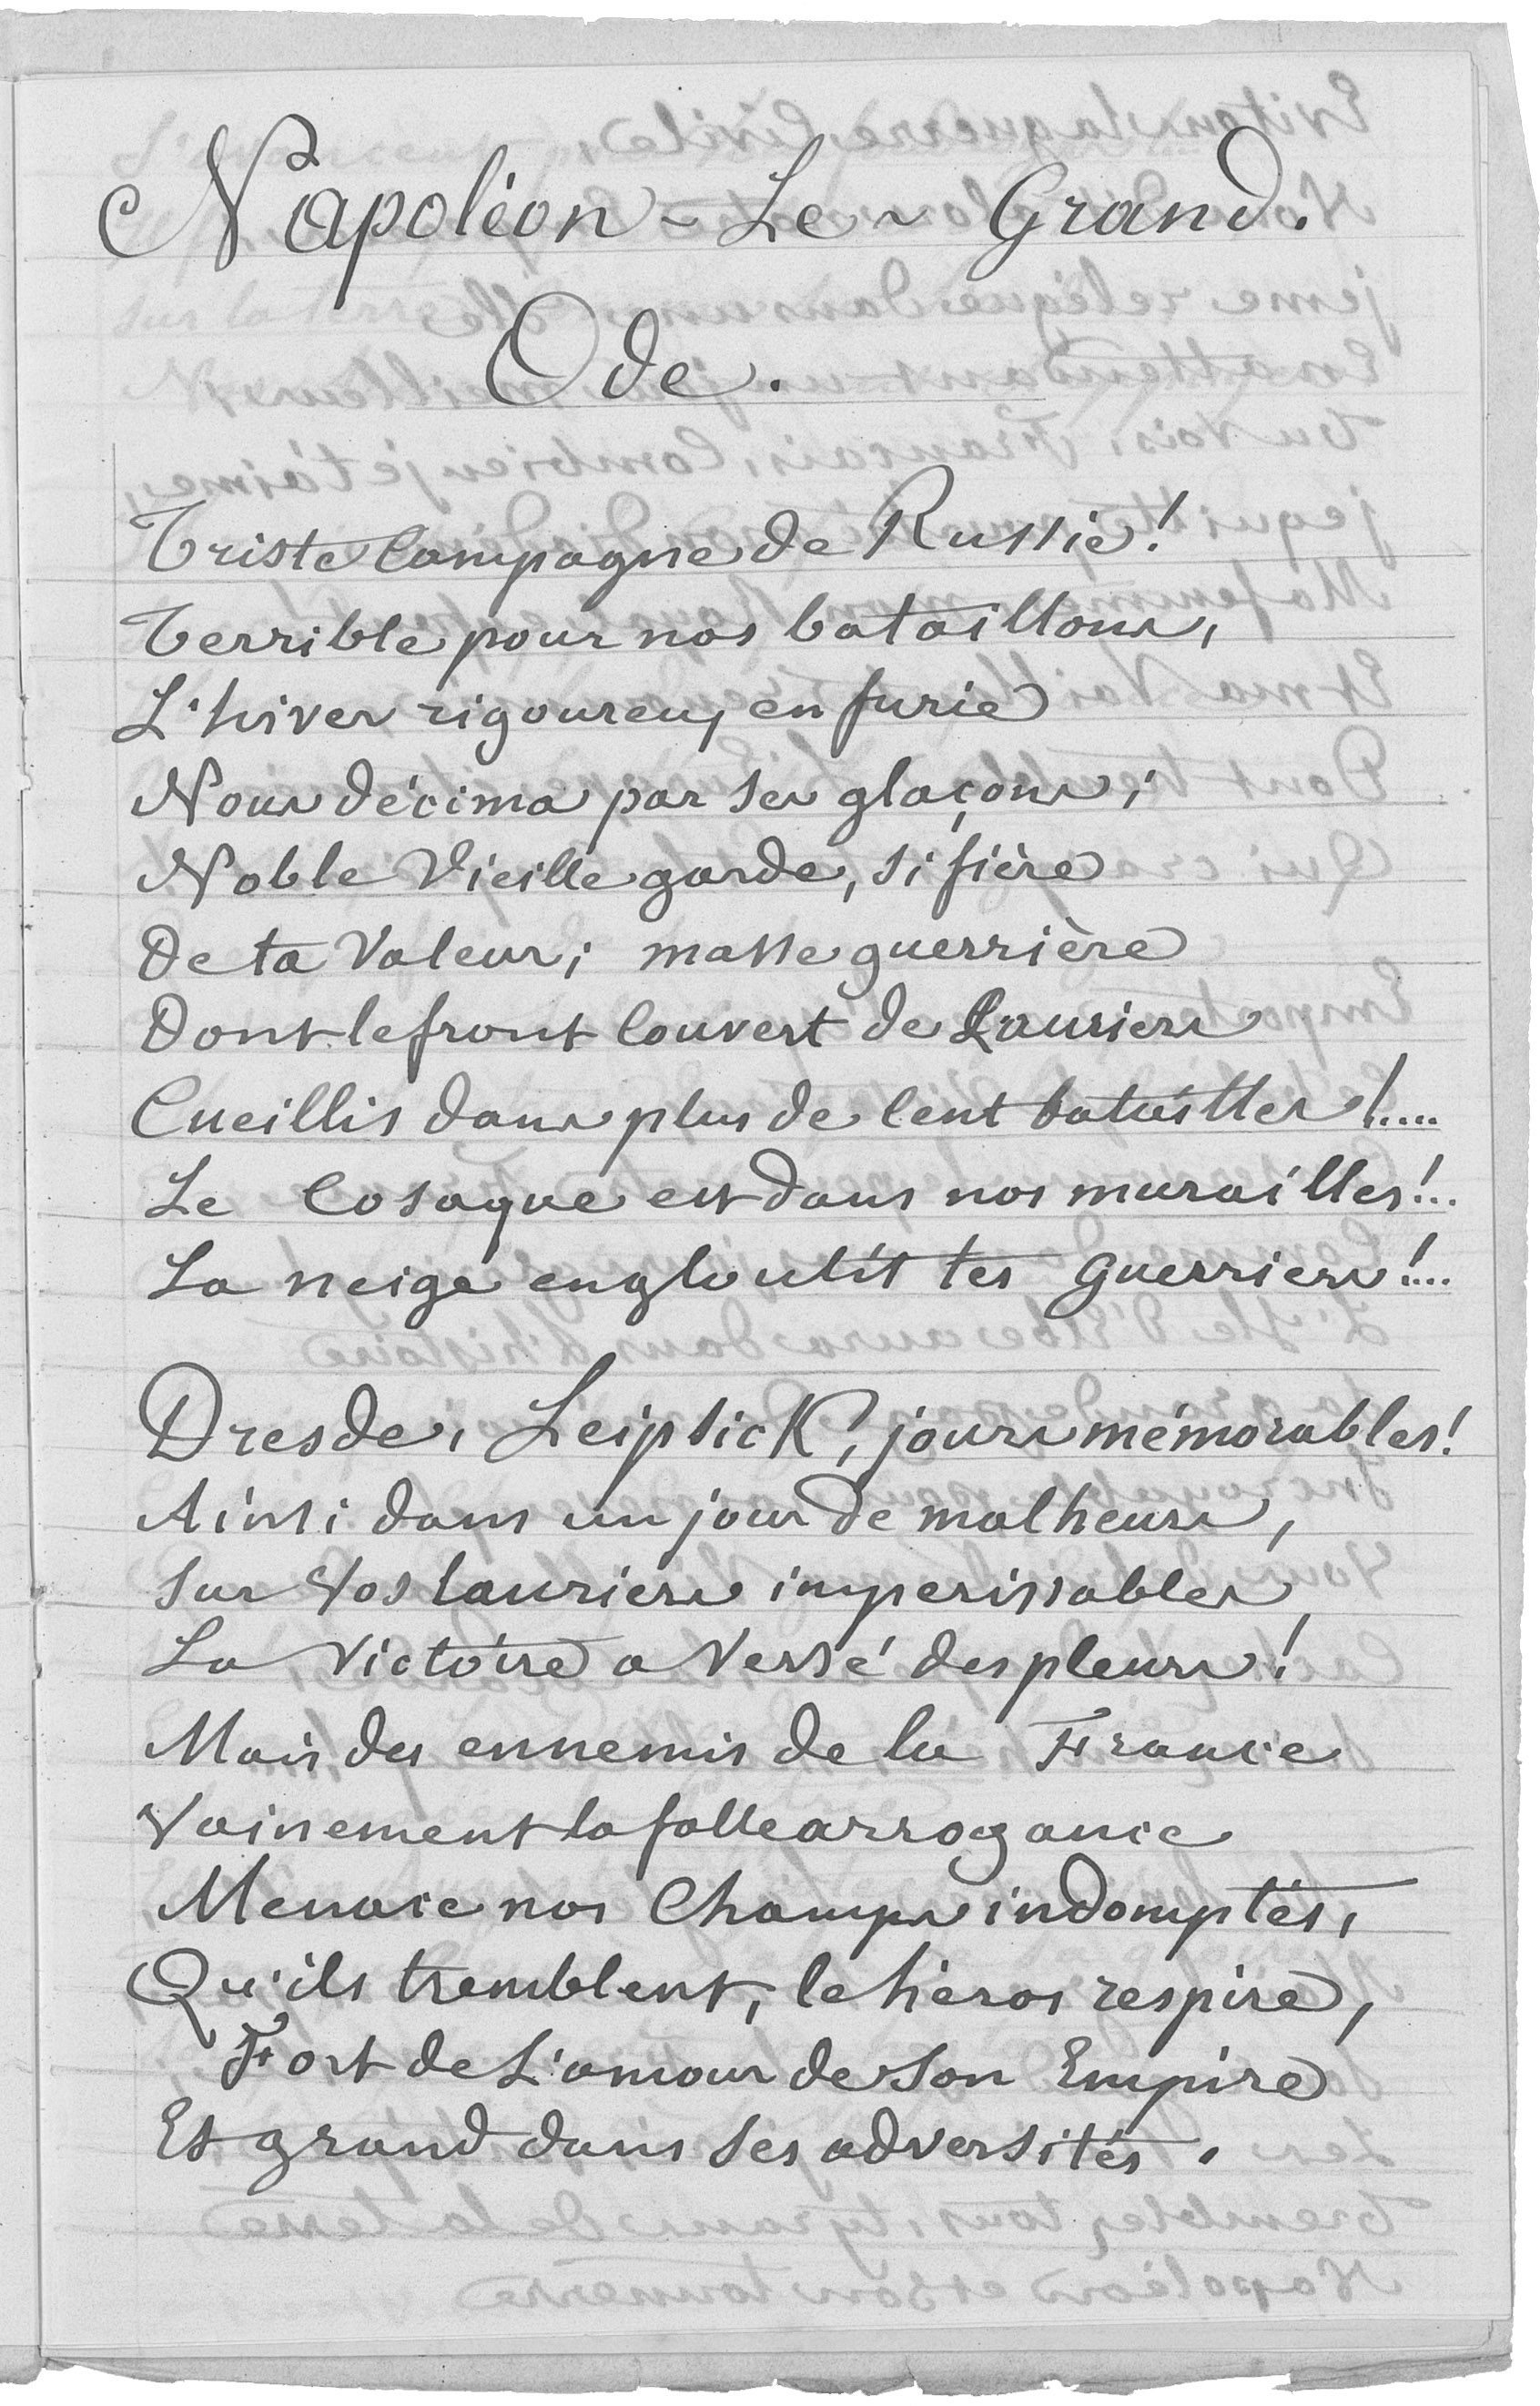 Napoléon - Le - Grand.
Ode.
Triste Campagne de Russie!
Terrible pour nos bataillons,
L'hiver rigoureux en furie
Nous décima par ses glaçons;
Noble Vieille garde, si fière
De ta Valeur; masse guerrière
Dont le front Couvert de Lauriers
Cueillis dans plus de Cent batailles!....
Le Cosaque est dans nos murailles!..
La neige engloutit tes Guerriers!...
Dresde, Leipsick, jours mémorables!
Ainsi dans un jour de malheurs,
Sur Vos lauriers imperissables
La Victoire a Versé des pleurs!
Mais des ennemis de la France
Vainement la folle arrogance
Menace nos Champs indomptés,
Qu'ils tremblent, le héros respire,
Fort de L'amour de Son Empire
Et grand dans ses adversités.